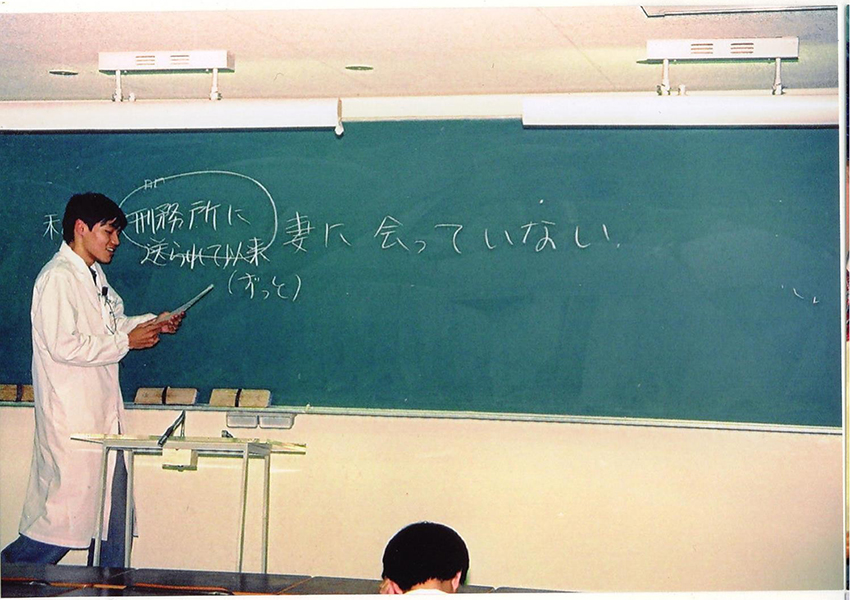 刑務所に
送られて以来
妻に 会っていない.
(ずっと)